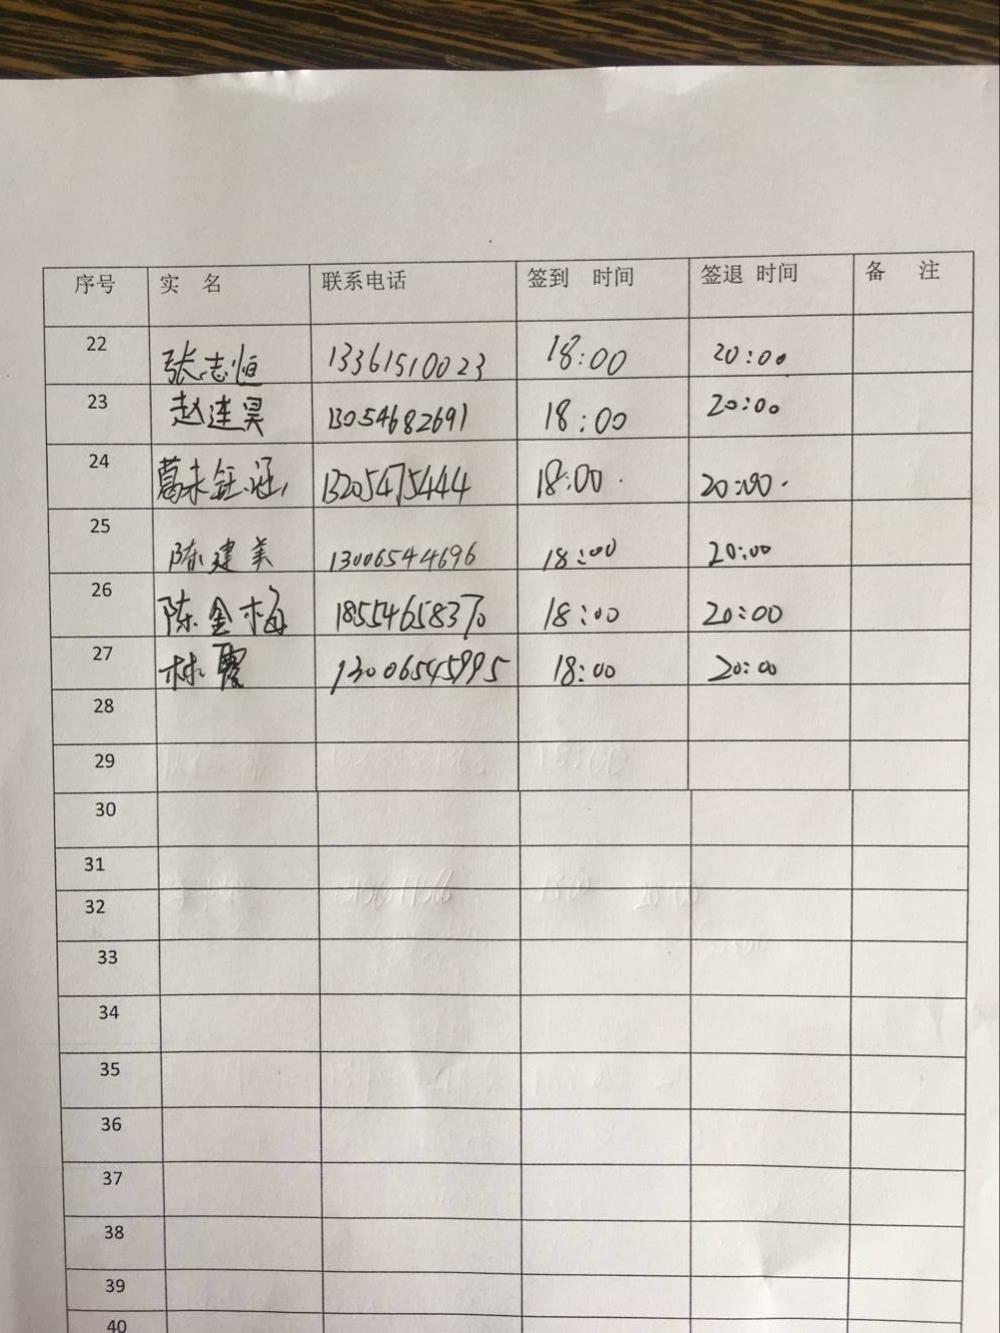 序号 实 名 联系电话 签到 时间 签退 时间 备 注
22 张志恒 13361510023 18:00 20:00
23 赵连昊 13054682691 18:00 20:00
24 葛未钰涵 13205475444 18:00. 20:00.
25 陈建美 13006544696 18:00 20:00
26 陈金梅 18554658370 18:00 20:00
27 林霞 13006545995 18:00 20:00
28
29
30
31
32
33
34
35
36
37
38
39
40